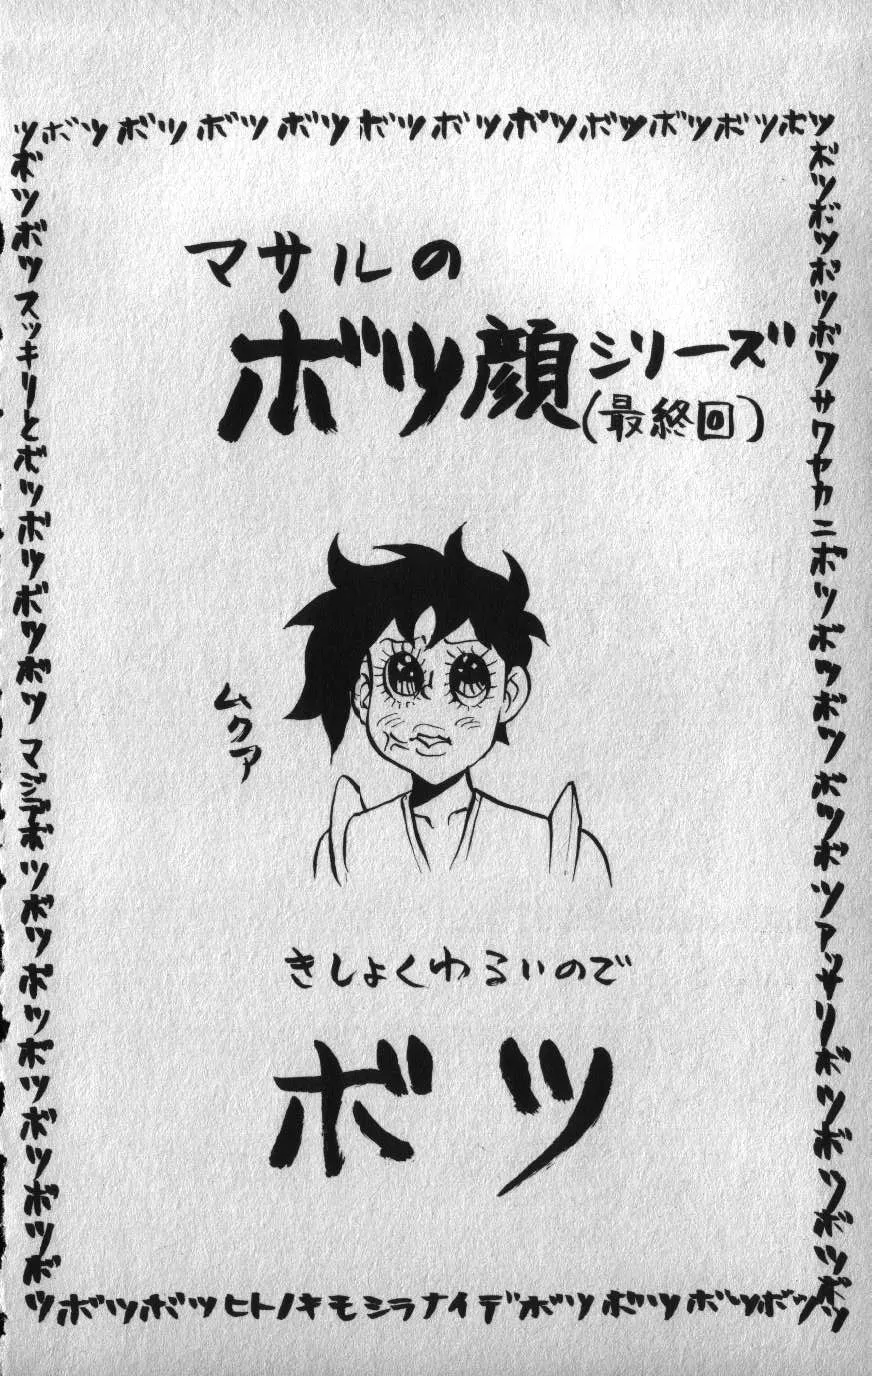 ツボツボツボツボツボツボツボツボツボツボツボツ
マサルの
ボツ顔シリーズ
(最終回)
ムクア
きしょくわるいので
ボツ
ボツボツスッキリとボツボツボツボツマジデボツボツボツボツボツボツボ
ボツボツボツボツサワヤカニボツボツボツボツボツアッサリボツボツボツボツ
ツボツボツヒトノキモシラナイデボツボツボツボツ